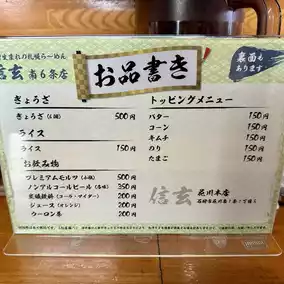 信玄 南6条店
お品書き
裏面も
あります
ぎょうざ
ぎょうざ 500円
ライス
ライス 150円
お飲み物
プレミアムモルツ 500円
ノンアルコールビール 350円
炭酸飲料(コーラ・サイダー) 200円
ジュース(オレンジ) 200円
ウーロン茶 200円
トッピングメニュー
バター 150円
コーン 150円
キムチ 150円
のり 150円
たまご 150円
信玄 花川本店